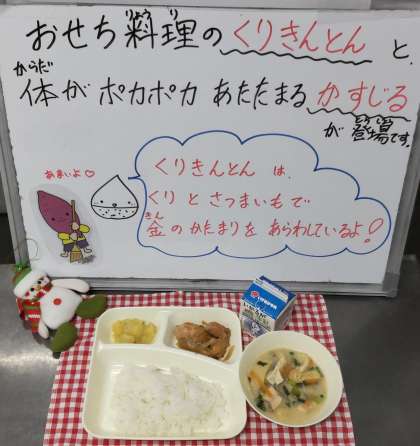 おせち料理のくりきんとんと、
りょうり
からだ
体がポカポカあたたまるかすじる
が登場です。
とうじょう
あまいよ♡
くりきんとんは、
くりとさつまいもで
きん
金のかたまりをあらわしているよ!